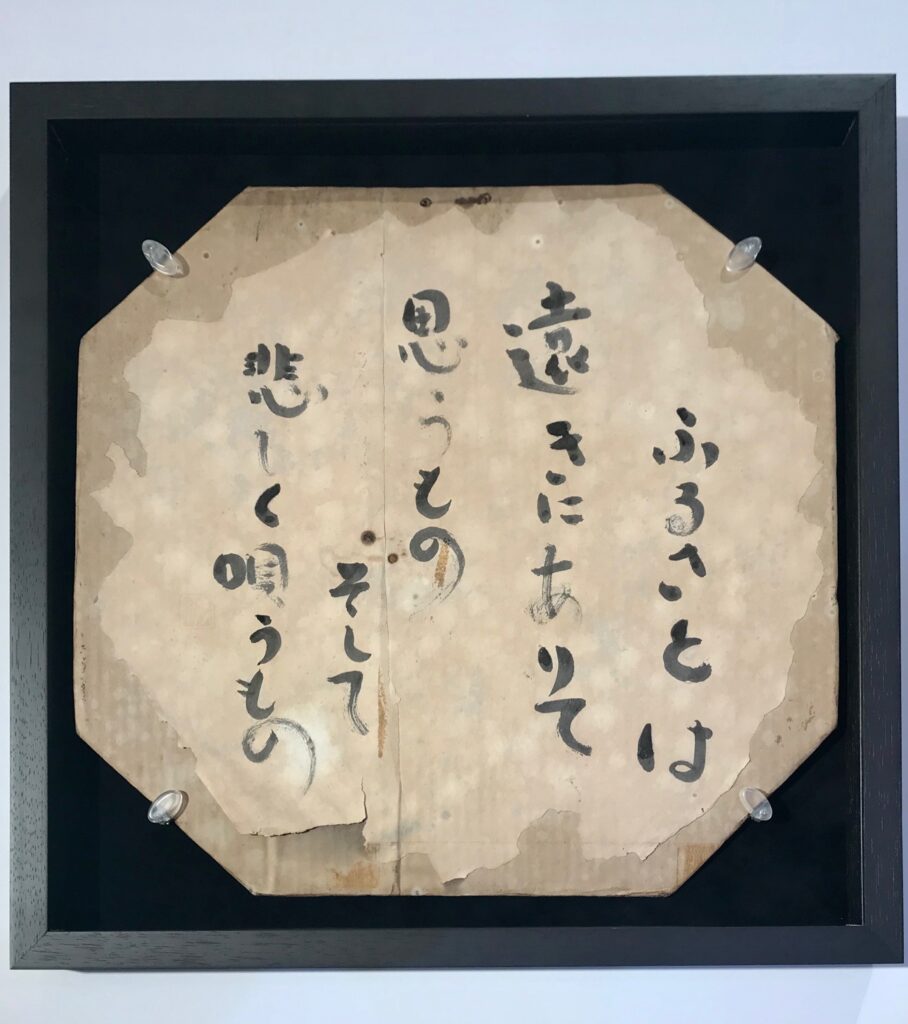 ふるさとは
遠きにありて
思うもの
そして
悲しく唄うもの